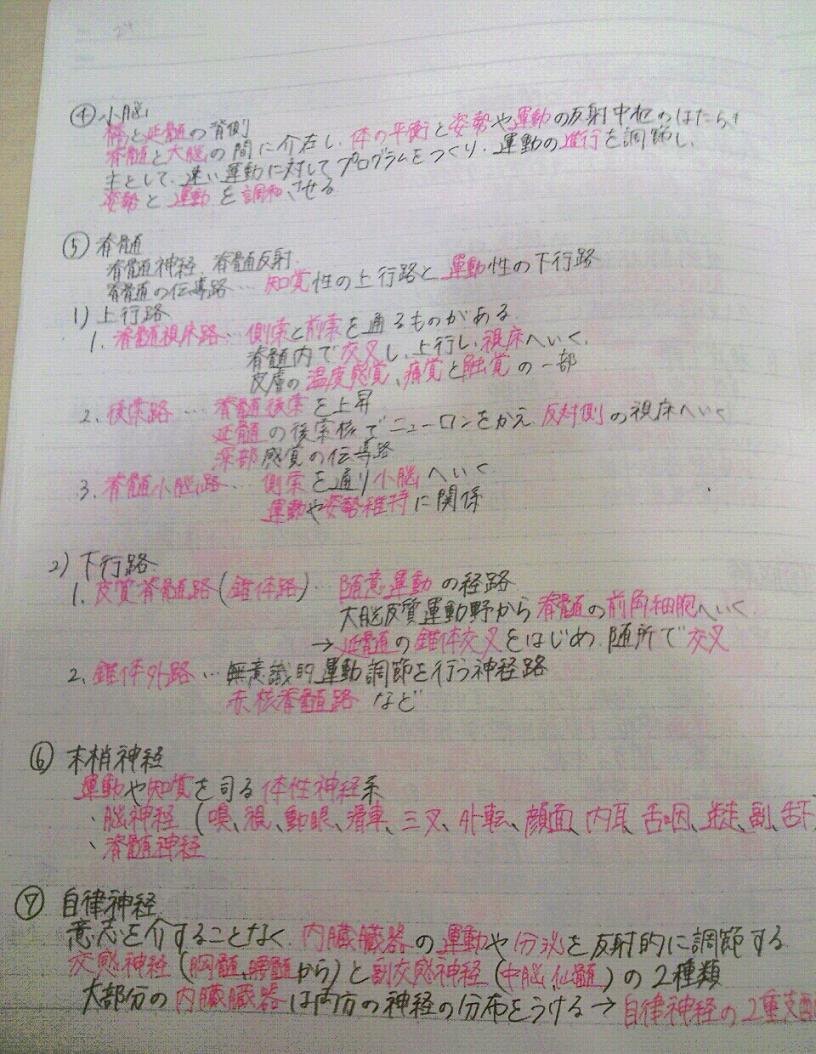 24
④ 小脳
橋と延髄の背側
脊髄と大脳の間に介在し、体の平衡と姿勢や運動の反射中枢のはたらき
主として、速い運動に対してプログラムをつくり、運動の進行を調節し、
姿勢と運動を調和させる
⑤ 脊髄
脊髄神経、脊髄反射
脊髄の伝導路…知覚性の上行路と運動性の下行路
1) 上行路
1. 脊髄視床路…側索と前索を通るものがある
脊髄内で交叉し、上行し、視床へいく
皮膚の温度感覚、痛覚と触覚の一部
2. 後索路…脊髄後索を上昇
延髄の後索核でニューロンをかえ、反対側の視床へいく
深部感覚の伝導路
3. 脊髄小脳路…側索を通り小脳へいく
運動や姿勢維持に関係
2) 下行路
1. 皮質脊髄路(錐体路)…随意運動の経路
大脳皮質運動野から脊髄の前角細胞へいく
→延髄の錐体交叉をはじめ、随所で交叉
2. 錐体外路…無意識的運動調節を行う神経路
赤核脊髄路など
⑥ 末梢神経
運動や知覚を司る体性神経系
・脳神経(嗅、視、動眼、滑車、三叉、外転、顔面、内耳、舌咽、迷走、副、舌下
・脊髄神経
⑦ 自律神経
意志を介することなく、内臓臓器の運動や分泌を反射的に調節する
交感神経(胸髄、腰髄から)と副交感神経(中脳、仙髄)の2種類
大部分の内臓臓器は両方の神経の分布をうける→自律神経の2重支配